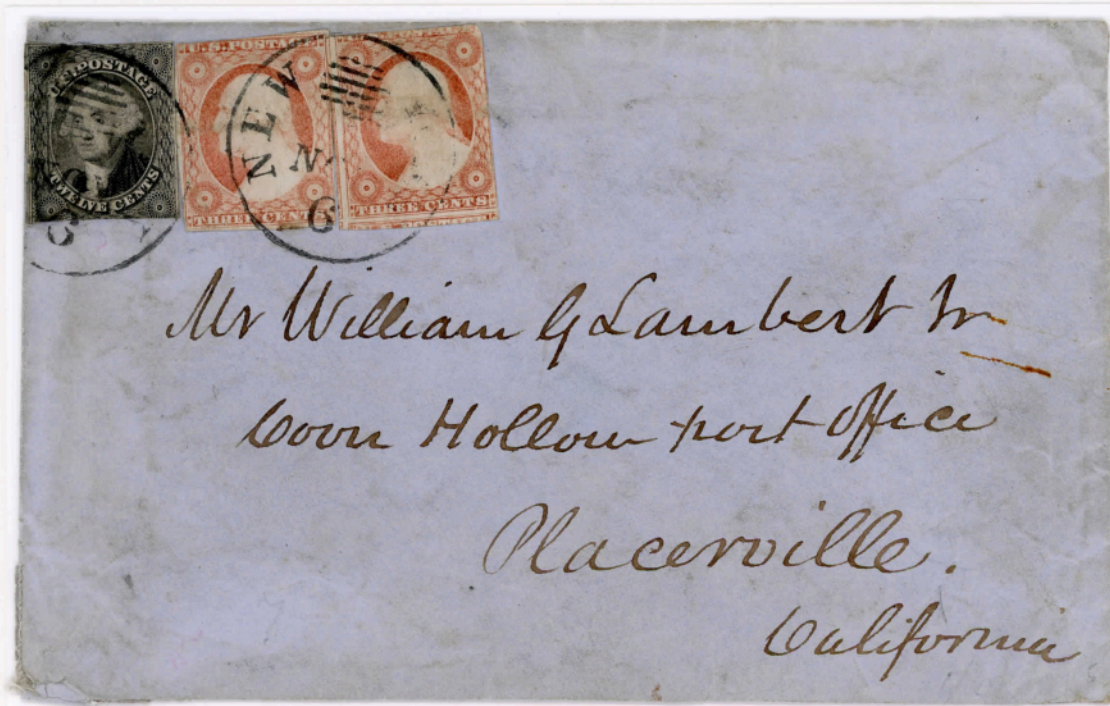 U.S. POSTAGE
TWELVE CENTS
U.S. POSTAGE
THREE CENTS
THREE CENTS
NEW
6
Mr William G Lambert Jr
Coon Hollow post office
Placerville.
California